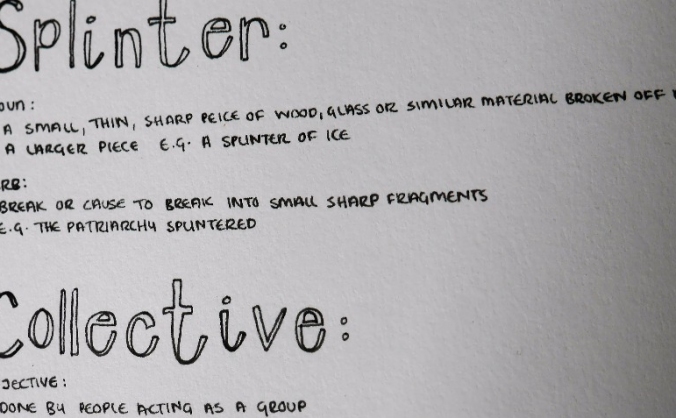 Splinter:
oun:
A SMALL, THIN, SHARP PEICE OF WOOD, GLASS OR SIMILAR MATERIAL BROKEN OFF
A LARGER PIECE E.G. A SPLINTER OF ICE
RB:
BREAK OR CAUSE TO BREAK INTO SMALL SHARP FRAGMENTS
E.G. THE PATRIARCHY SPLINTERED
Collective:
JECTIVE:
DONE BY PEOPLE ACTING AS A GROUP